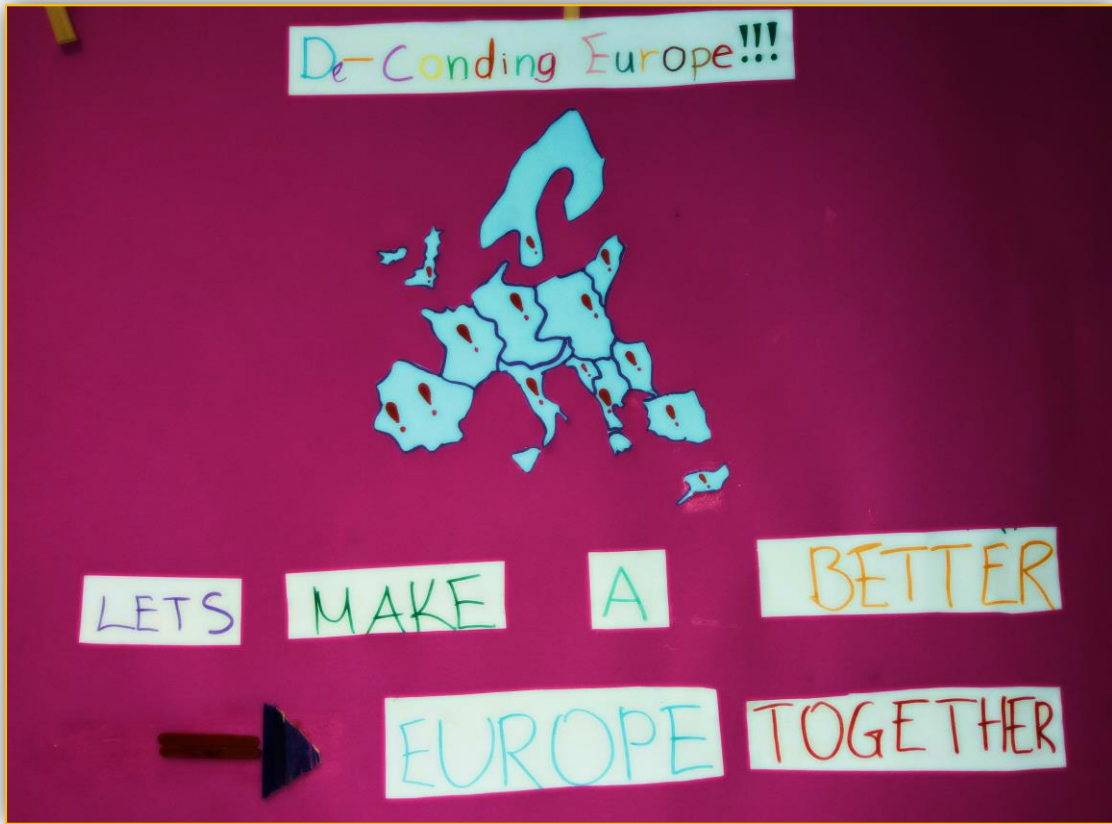 De-Conding Europe!!!
LETS MAKE A BETTER
EUROPE TOGETHER